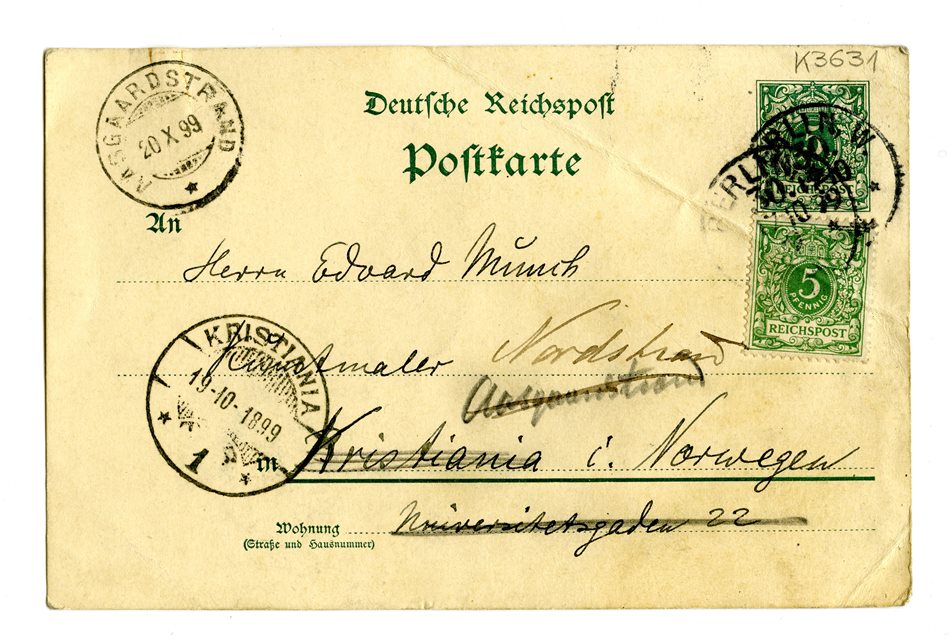 K3631
Deutsche Reichspost
Postkarte
AASGAARDSTRAND
20 X 99
BERLIN W
REICHSPOST
5
PFENNIG
REICHSPOST
An
Herrn Edvard Munch
Kunstmaler Nordstrand
KRISTIANIA
19-10-1899
1
in Kristiania i. Norwegen
Wohnung
(Straße und Hausnummer)
Universitetsgaden 22